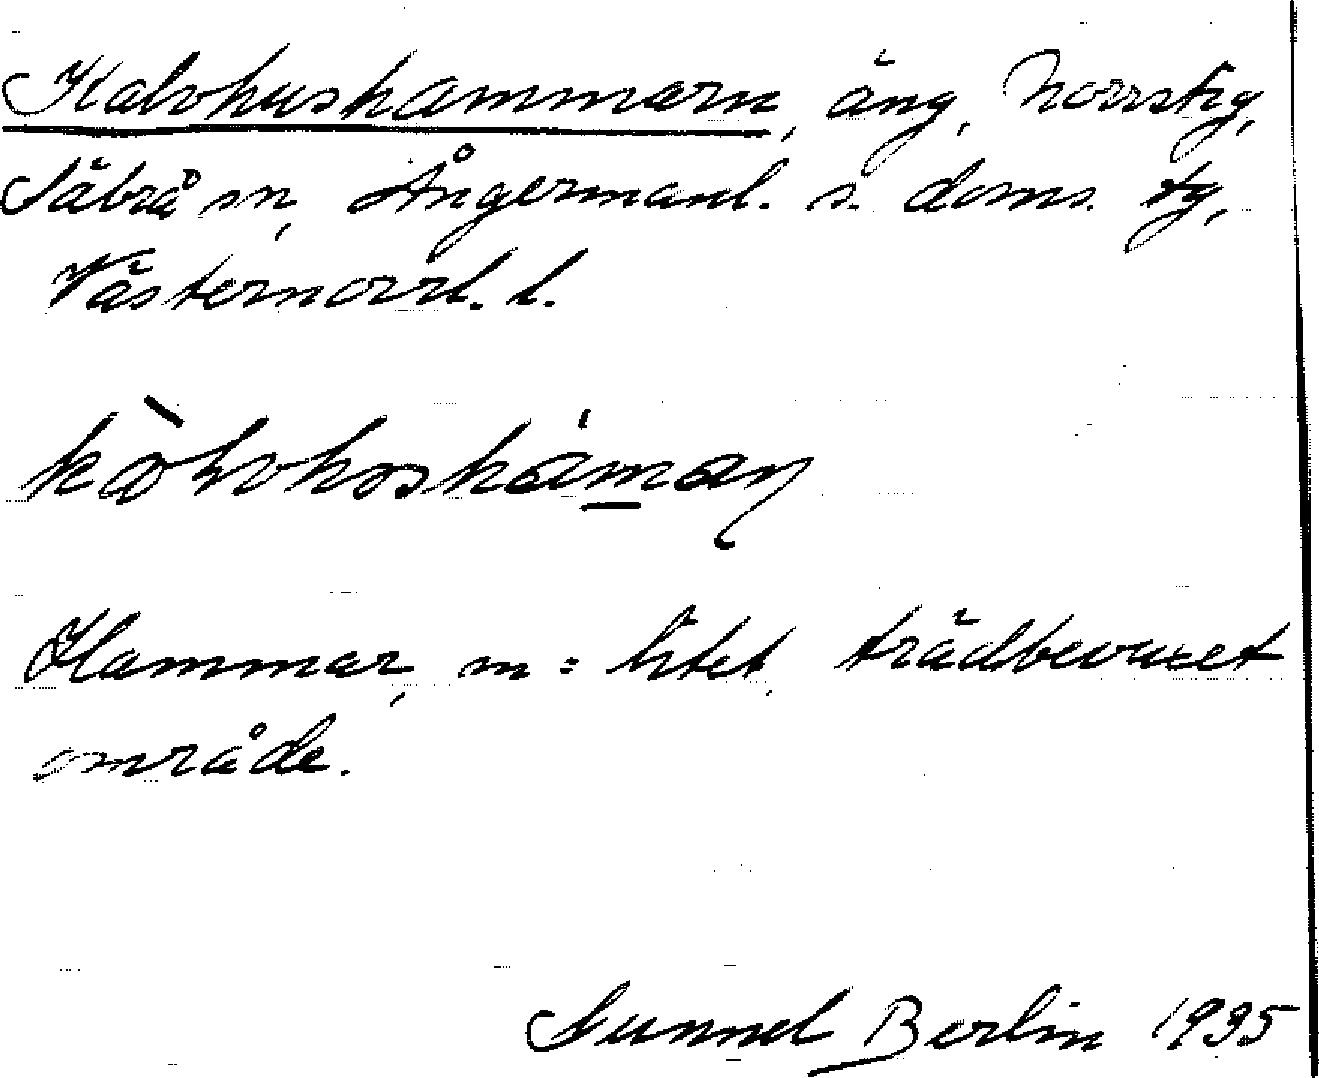 Kalvhushammarn, äng, Norrstig,
Säbrå sn, Ångermanl. s. doms. tg,
Västernorrl. l.
Hammar, m = litet, trädbevuxet
område.
Sunnel Berlin 1935